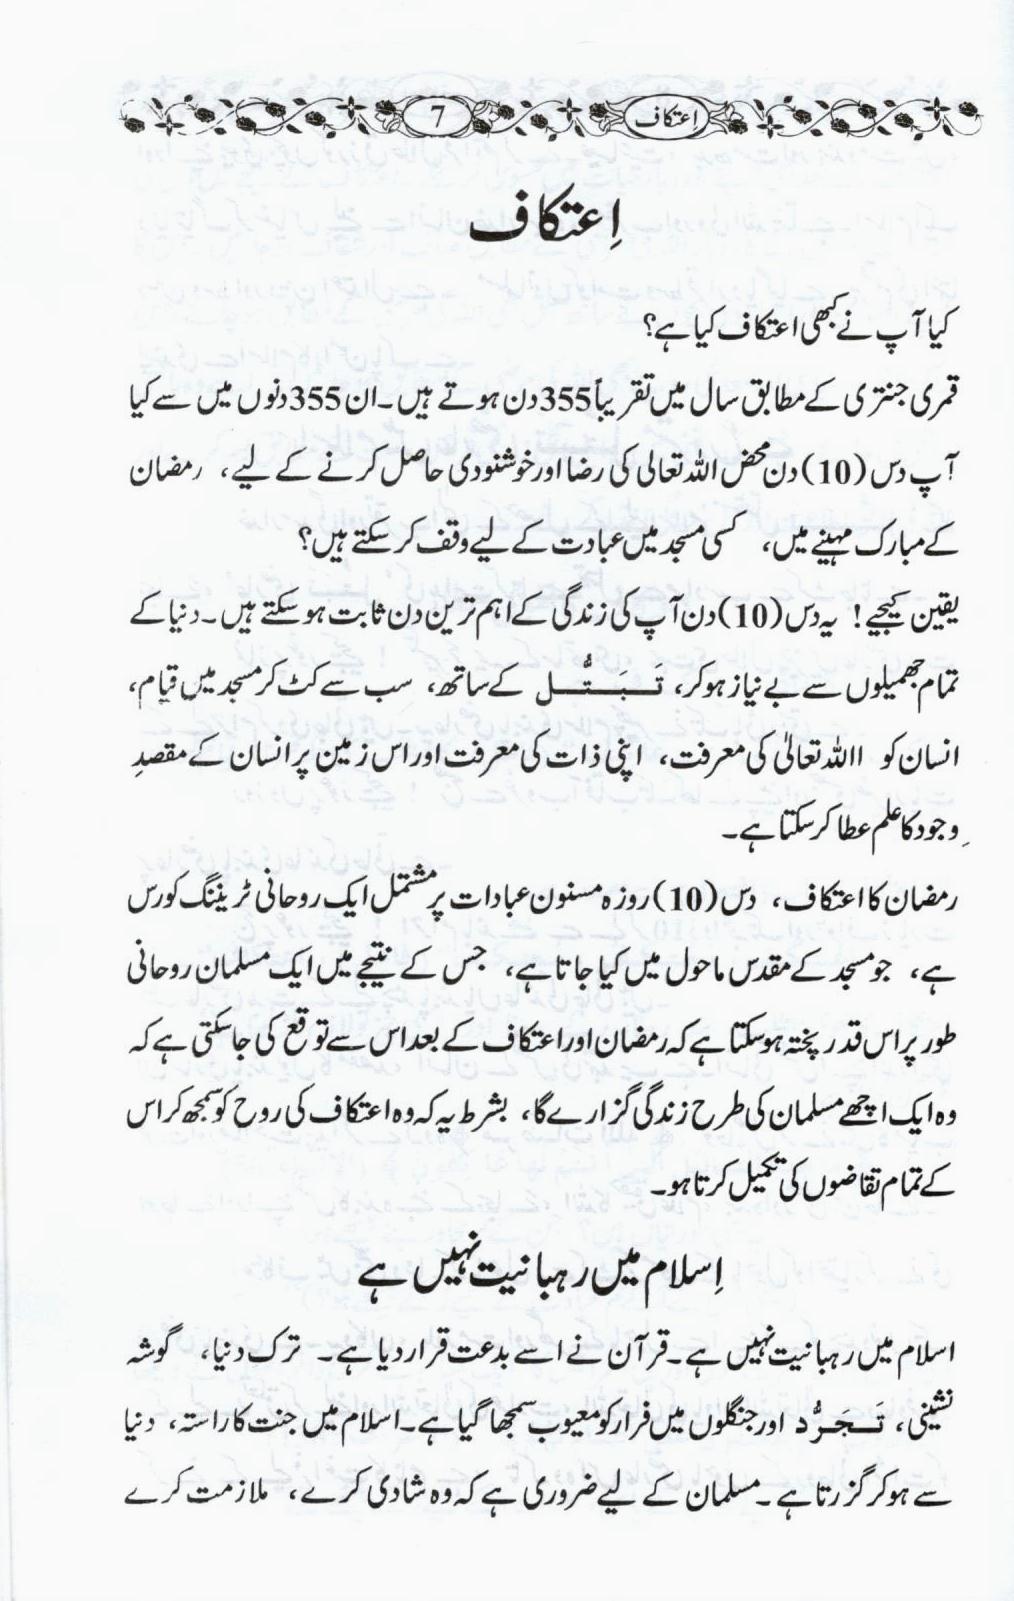 اِعتکاف
7
اِعتکاف
کیا آپ نے کبھی اعتکاف کیا ہے؟
قمری جنتری کے مطابق سال میں تقریباً 355 دن ہوتے ہیں۔ ان 355 دنوں میں سے کیا
آپ دس (10) دن محض اللہ تعالی کی رضا اور خوشنودی حاصل کرنے کے لیے، رمضان
کے مبارک مہینے میں، کسی مسجد میں عبادت کے لیے وقف کر سکتے ہیں؟
یقین کیجیے! یہ دس (10) دن آپ کی زندگی کے اہم ترین دن ثابت ہو سکتے ہیں۔ دنیا کے
تمام جھمیلوں سے بے نیاز ہوکر، تَبَتُّل کے ساتھ، سب سے کٹ کر مسجد میں قیام،
انسان کو االلہ تعالیٰ کی معرفت، اپنی ذات کی معرفت اور اس زمین پر انسان کے مقصدِ
وجود کا علم عطا کر سکتا ہے۔
رمضان کا اعتکاف، دس (10) روزہ مسنون عبادات پر مشتمل ایک روحانی ٹریننگ کورس
ہے، جو مسجد کے مقدس ماحول میں کیا جاتا ہے، جس کے نتیجے میں ایک مسلمان روحانی
طور پر اس قدر پختہ ہو سکتا ہے کہ رمضان اور اعتکاف کے بعد اس سے توقع کی جا سکتی ہے کہ
وہ ایک اچھے مسلمان کی طرح زندگی گزارے گا، بشرط یہ کہ وہ اعتکاف کی روح کو سمجھ کر اس
کے تمام تقاضوں کی تکمیل کرتا ہو۔
اِسلام میں رہبانیت نہیں ہے
اسلام میں رہبانیت نہیں ہے۔ قرآن نے اسے بدعت قرار دیا ہے۔ ترک دنیا، گوشہ
نشینی، تَجَرُّد اور جنگلوں میں فرار کو معیوب سمجھا گیا ہے۔ اسلام میں جنت کا راستہ، دنیا
سے ہو کر گزرتا ہے۔ مسلمان کے لیے ضروری ہے کہ وہ شادی کرے، ملازمت کرے